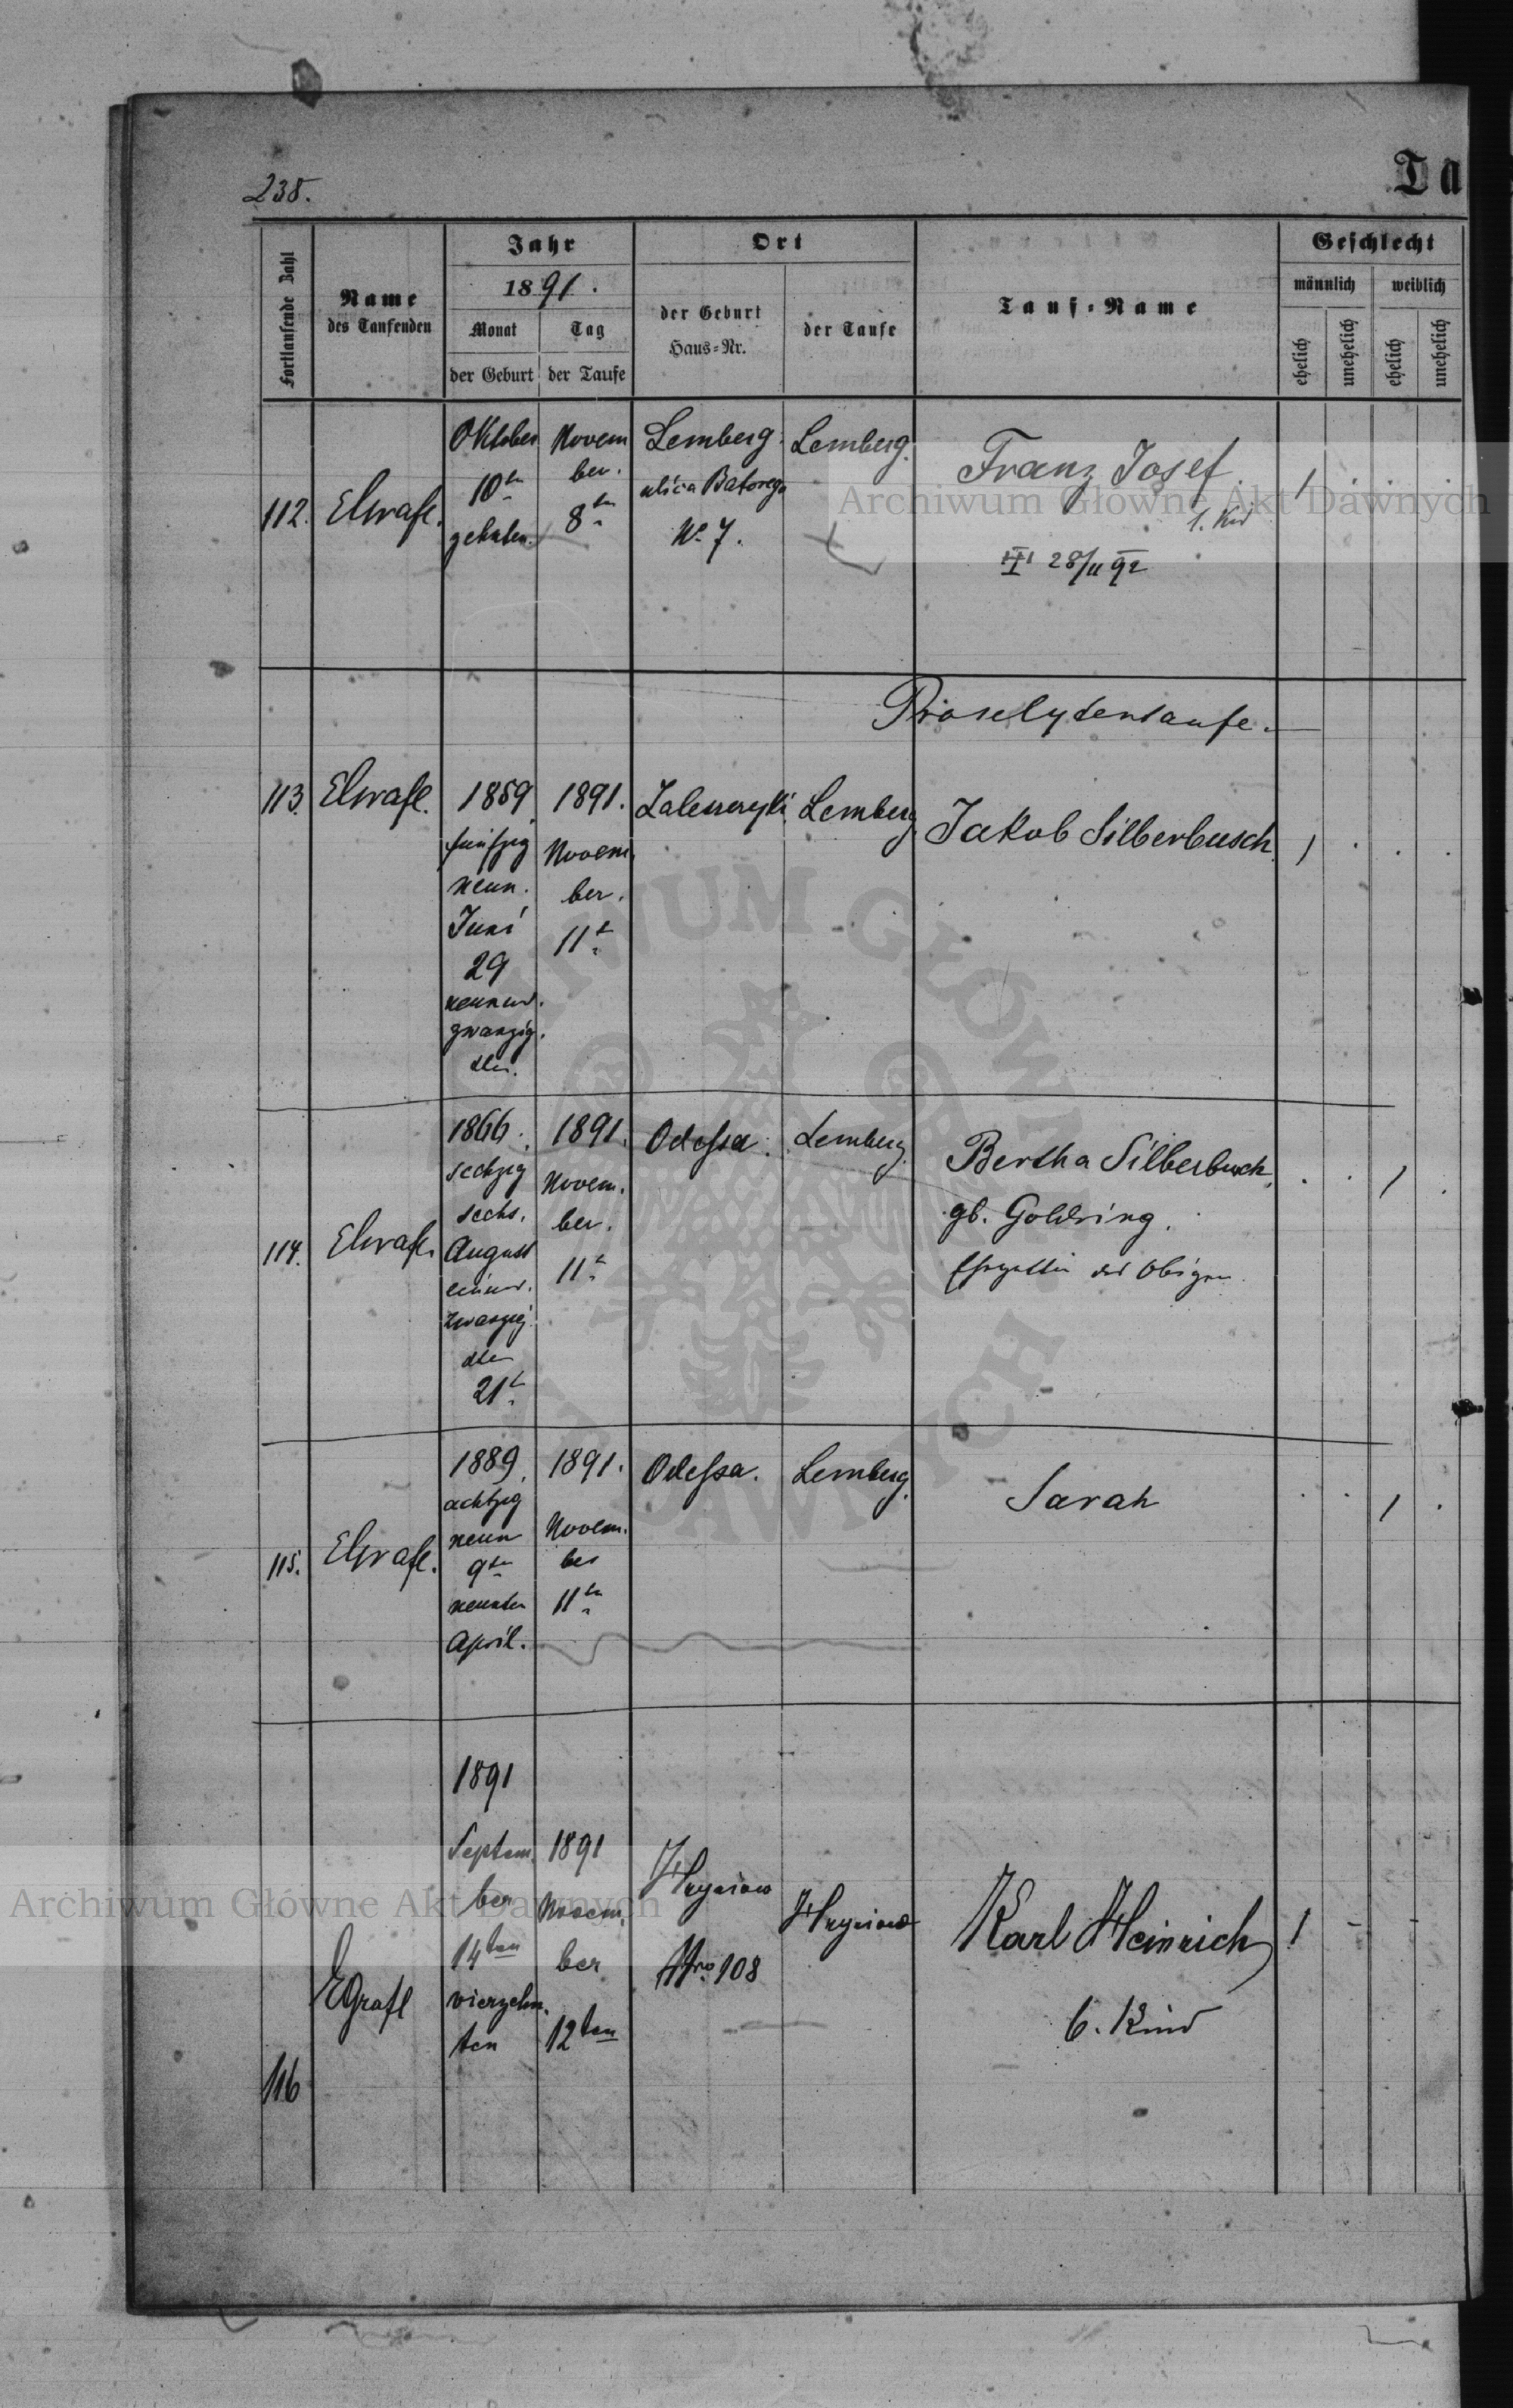 238.
Ta
Fortlaufende Zahl
Name
des Taufenden
Jahr
1891.
Monat
Tag
der Geburt
der Taufe
Ort
der Geburt
Haus=Nr.
der Taufe
Tauf=Name
Geschlecht
männlich
weiblich
ehelich
unehelich
ehelich
unehelich
112.
Oktober
10ten
Novem
ber.
8ten
Lemberg
ulica Batorego
No 7.
Lemberg.
Franz Josef
1. Kind
III 28/11 92
1
Proselytentaufe.
113.
1859.
fünfzig
neun.
Juni
29
neunund.
zwanzig.
1891.
Novem.
ber.
11t
Zaleszczyki
Lemberg
Jakob Silberbusch.
1
114.
1866.
sechzig
sechs.
August
einund.
zwanzig
21t
1891.
Novem.
ber.
11t
Odessa.
Lemberg.
Bertha Silberbusch,
gb. Goldring.
Ehegattin des Obigen.
1
115.
1889.
achtzig
neun
9ten
neunten
April.
1891.
Novem.
ber
11ten
Odessa.
Lemberg.
Sarah
1
116
1891
Septem.
ber
14ten
vierzehn.
ten
1891
Novem.
ber
12ten
Nro 108
Karl Heinrich
6. Kind
1
Archiwum Główne Akt Dawnych
Archiwum Główne Akt Dawnych